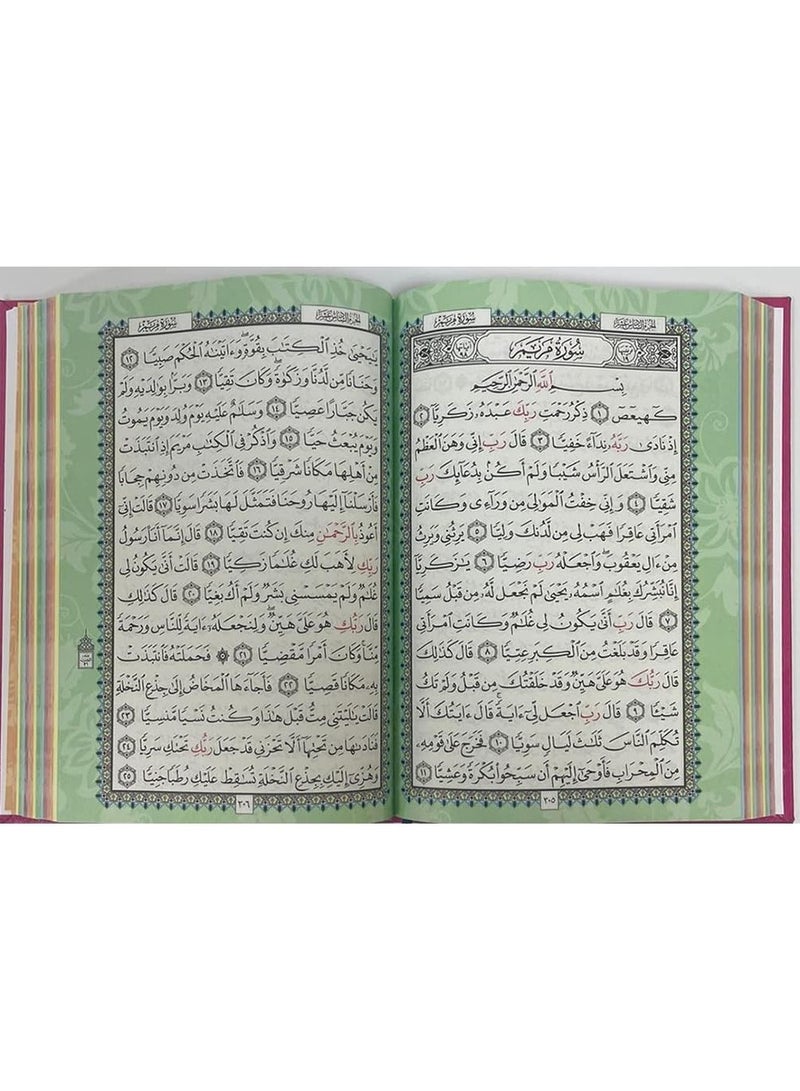 سورة مريم
الجزء السادس عشر
سُورَةُ مَرْيَمَ
بِسْمِ اللَّهِ الرَّحْمَٰنِ الرَّحِيمِ
كٓهيعٓصٓ ١ ذِكْرُ رَحْمَتِ رَبِّكَ عَبْدَهُۥ زَكَرِيَّآ ٢
إِذْ نَادَىٰ رَبَّهُۥ نِدَآءً خَفِيًّا ٣ قَالَ رَبِّ إِنِّى وَهَنَ ٱلْعَظْمُ
مِنِّى وَٱشْتَعَلَ ٱلرَّأْسُ شَيْبًا وَلَمْ أَكُنۢ بِدُعَآئِكَ رَبِّ
شَقِيًّا ٤ وَإِنِّى خِفْتُ ٱلْمَوَٰلِىَ مِن وَرَآءِى وَكَانَتِ
ٱمْرَأَتِى عَاقِرًا فَهَبْ لِى مِن لَّدُنكَ وَلِيًّا ٥ يَرِثُنِى وَيَرِثُ
مِنْ ءَالِ يَعْقُوبَ ۖ وَٱجْعَلْهُ رَبِّ رَضِيًّا ٦ يَٰزَكَرِيَّآ
إِنَّا نُبَشِّرُكَ بِغُلَٰمٍ ٱسْمُهُۥ يَحْيَىٰ لَمْ نَجْعَل لَّهُۥ مِن قَبْلُ سَمِيًّا
٧ قَالَ رَبِّ أَنَّىٰ يَكُونُ لِى غُلَٰمٌ وَكَانَتِ ٱمْرَأَتِى
عَاقِرًا وَقَدْ بَلَغْتُ مِنَ ٱلْكِبَرِ عِتِيًّا ٨ قَالَ كَذَٰلِكَ
قَالَ رَبُّكَ هُوَ عَلَىَّ هَيِّنٌ وَقَدْ خَلَقْتُكَ مِن قَبْلُ وَلَمْ تَكُ
شَيْـًٔا ٩ قَالَ رَبِّ ٱجْعَل لِّىٓ ءَايَةً ۚ قَالَ ءَايَتُكَ أَلَّا
تُكَلِّمَ ٱلنَّاسَ ثَلَٰثَ لَيَالٍ سَوِيًّا ١٠ فَخَرَجَ عَلَىٰ قَوْمِهِۦ
مِنَ ٱلْمِحْرَابِ فَأَوْحَىٰٓ إِلَيْهِمْ أَن سَبِّحُوا۟ بُكْرَةً وَعَشِيًّا ١١
٣٠٥
سورة مريم
الجزء السادس عشر
يَٰيَحْيَىٰ خُذِ ٱلْكِتَٰبَ بِقُوَّةٍ ۖ وَءَاتَيْنَٰهُ ٱلْحُكْمَ صَبِيًّا ١٢
وَحَنَانًا مِّن لَّدُنَّا وَزَكَوٰةً ۖ وَكَانَ تَقِيًّا ١٣ وَبَرًّۢا بِوَٰلِدَيْهِ وَلَمْ
يَكُن جَبَّارًا عَصِيًّا ١٤ وَسَلَٰمٌ عَلَيْهِ يَوْمَ وُلِدَ وَيَوْمَ يَمُوتُ
وَيَوْمَ يُبْعَثُ حَيًّا ١٥ وَٱذْكُرْ فِى ٱلْكِتَٰبِ مَرْيَمَ إِذِ ٱنتَبَذَتْ
مِنْ أَهْلِهَا مَكَانًا شَرْقِيًّا ١٦ فَٱتَّخَذَتْ مِن دُونِهِمْ حِجَابًا
فَأَرْسَلْنَآ إِلَيْهَا رُوحَنَا فَتَمَثَّلَ لَهَا بَشَرًا سَوِيًّا ١٧ قَالَتْ إِنِّىٓ
أَعُوذُ بِٱلرَّحْمَٰنِ مِنكَ إِن كُنتَ تَقِيًّا ١٨ قَالَ إِنَّمَآ أَنَا۠ رَسُولُ
رَبِّكِ لِأَهَبَ لَكِ غُلَٰمًا زَكِيًّا ١٩ قَالَتْ أَنَّىٰ يَكُونُ لِى
غُلَٰمٌ وَلَمْ يَمْسَسْنِى بَشَرٌ وَلَمْ أَكُ بَغِيًّا ٢٠ قَالَ كَذَٰلِكِ
قَالَ رَبُّكِ هُوَ عَلَىَّ هَيِّنٌ ۖ وَلِنَجْعَلَهُۥٓ ءَايَةً لِّلنَّاسِ وَرَحْمَةً
مِّنَّا ۚ وَكَانَ أَمْرًا مَّقْضِيًّا ٢١ ۞ فَحَمَلَتْهُ فَٱنتَبَذَتْ
بِهِۦ مَكَانًا قَصِيًّا ٢٢ فَأَجَآءَهَا ٱلْمَخَاضُ إِلَىٰ جِذْعِ ٱلنَّخْلَةِ
قَالَتْ يَٰلَيْتَنِى مِتُّ قَبْلَ هَٰذَا وَكُنتُ نَسْيًا مَّنسِيًّا ٢٣
فَنَادَىٰهَا مِن تَحْتِهَآ أَلَّا تَحْزَنِى قَدْ جَعَلَ رَبُّكِ تَحْتَكِ سَرِيًّا ٢٤
وَهُزِّىٓ إِلَيْكِ بِجِذْعِ ٱلنَّخْلَةِ تُسَٰقِطْ عَلَيْكِ رُطَبًا جَنِيًّا ٢٥
٣٠٦